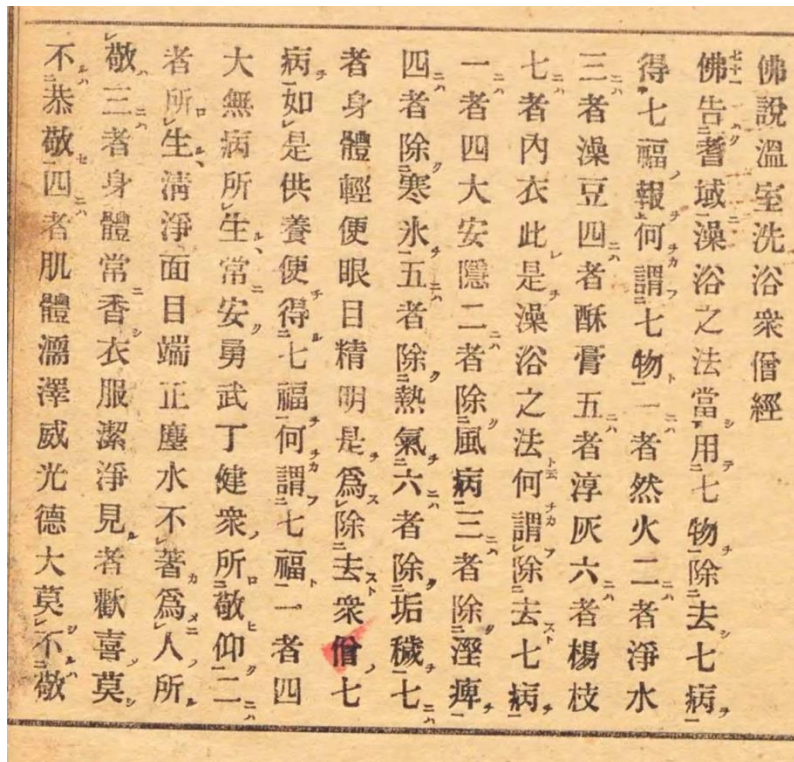 佛說溫室洗浴衆僧經
佛告耆域澡浴之法當用七物除去七病
得七福報何謂七物一者然火二者淨水
三者澡豆四者酥膏五者淳灰六者楊枝
七者內衣此是澡浴之法何謂除去七病
一者四大安隱二者除風病三者除溼痺
四者除寒氷五者除熱氣六者除垢穢七
者身體輕便眼目精明是爲除去衆僧七
病如是供養便得七福何謂七福一者四
大無病所生常安勇武丁健衆所敬仰二
者所生淸淨面目端正塵水不著爲人所
敬三者身體常香衣服潔淨見者歡喜莫
不恭敬四者肌體濡澤威光德大莫不敬